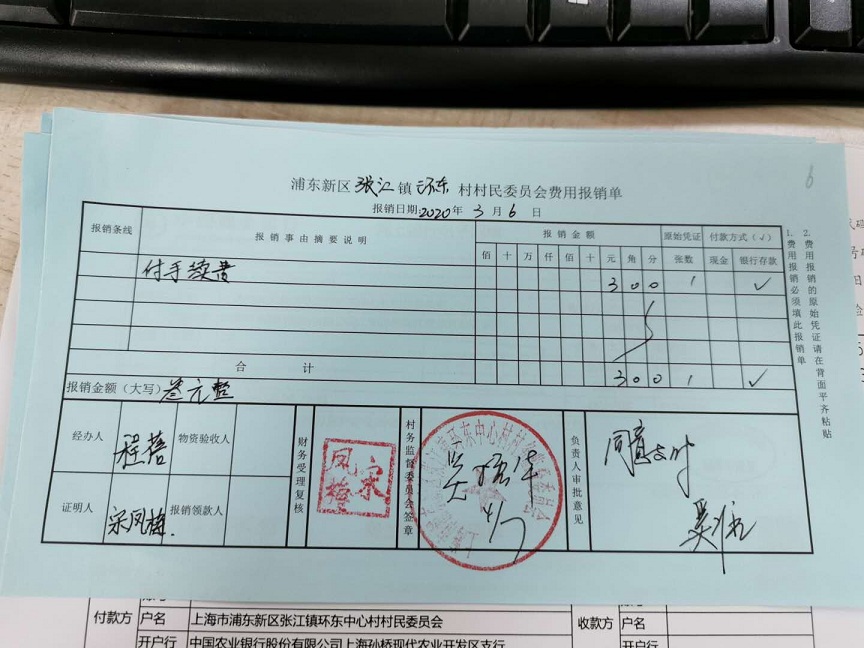 6
浦东新区张江镇环东村村民委员会费用报销单
报销日期2020年3月6日
报销条线 报销事由摘要说明 报销金额 原始凭证 付款方式（√）
佰 十 万 仟 佰 十 元 角 分 张数 现金 银行存款
付手续费 3 0 0 1 √
合计 3 0 0 1 √
报销金额（大写）叁元整
经办人 程蓓 物资验收人
证明人 宋凤梅. 报销领款人
财务受理复核
宋凤梅
村务监督委员会签章
负责人审批意见
同意支付
1.费用报销必须填此报销单
2.费用报销的原始凭证请在背面平齐粘贴
付款方 户名 上海市浦东新区张江镇环东中心村村民委员会 收款方 户名
开户行 中国农业银行股份有限公司上海孙桥现代农业开发区支行 开户行